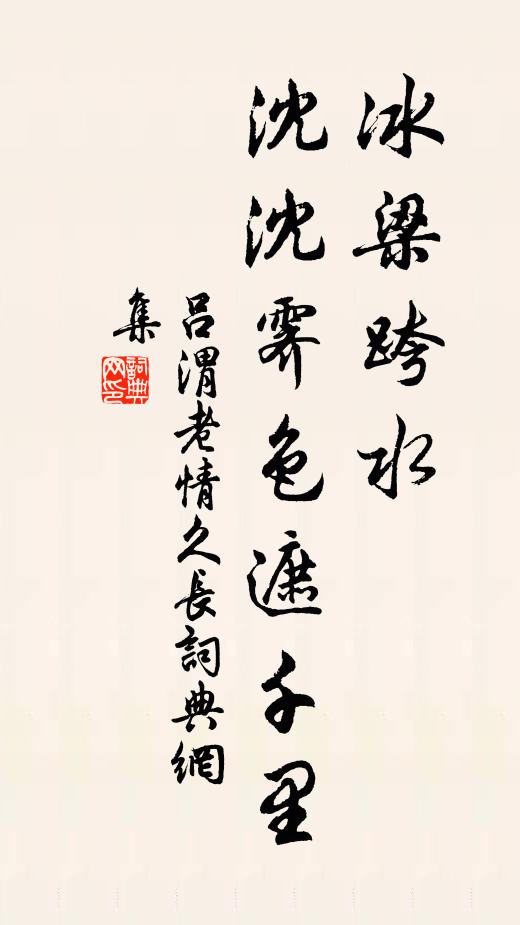 冰梁跨水
沈沈霽色遮千里
吕渭老情久長詞典網
集
詞典
网印